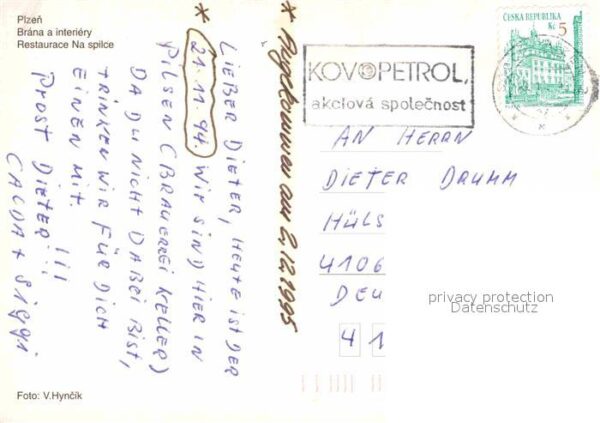 Plzeň
Brána a interiéry
Restaurace Na spilce
LIEBER DIETER, HEUTE IST DER
21.11.94. WIR SIND HIER IN
PILSEN (BRAUEREI KELLER)
DA DU NICHT DABEI BIST,
TRINKEN WIR FÜR DICH
EINEN MIT.
PROST DIETER!!!
CALDA + SIGGI
* Angekommen am 2.12.1995 *
KOVOPETROL,
akciová společnost
ČESKÁ REPUBLIKA
Kč 5
AN HERRN
DIETER DRUMM
HÜLS
4106
DEU
41
privacy protection
Datenschutz
Foto: V.Hynčík